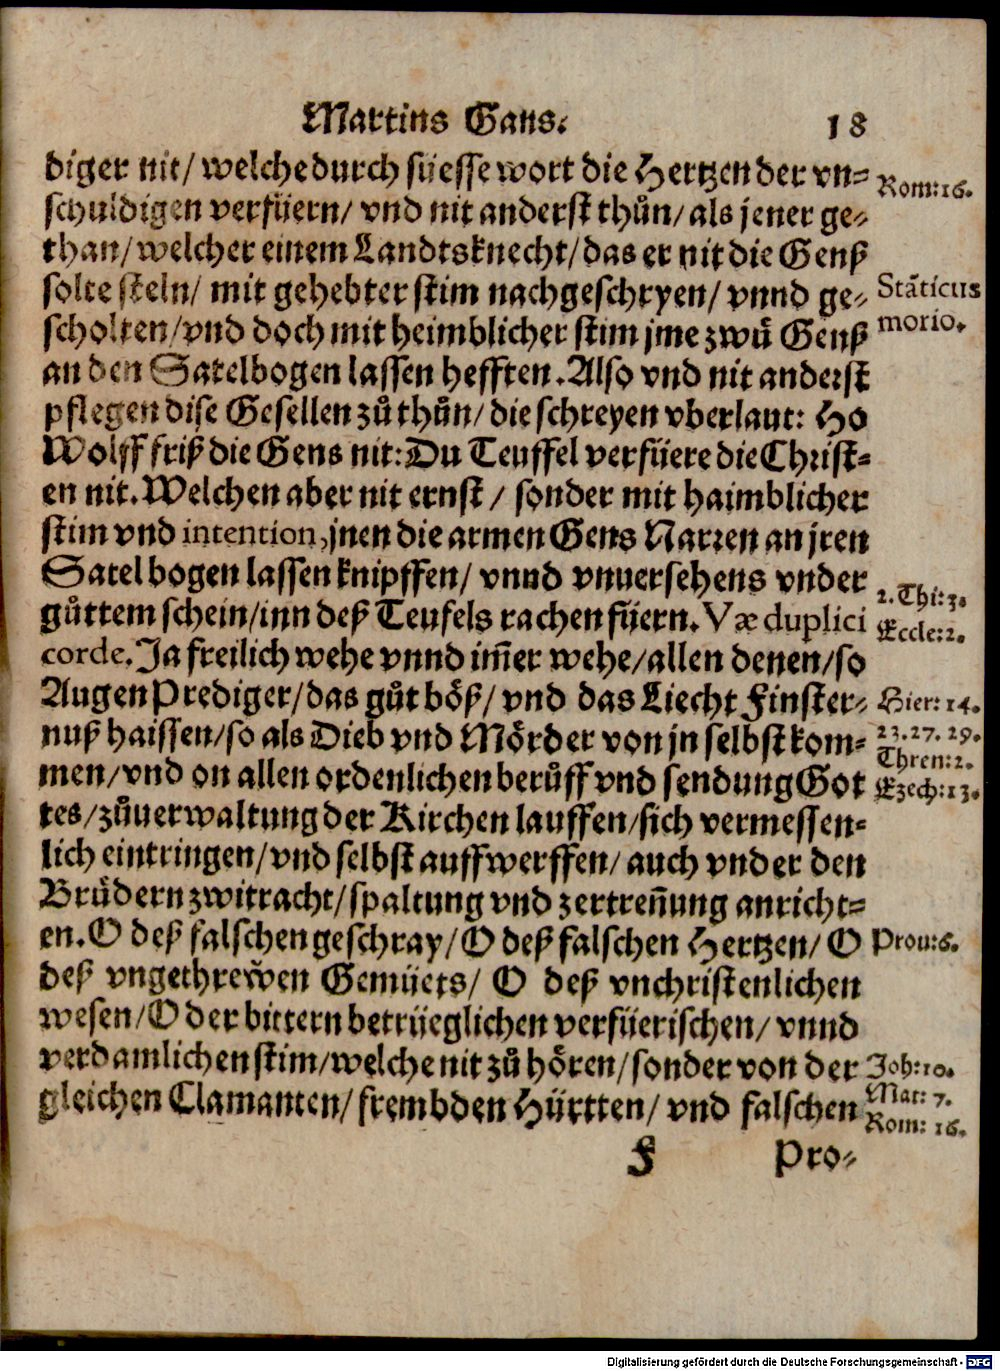 Martins Gans. 18
diger nit/ welche durch süesse wort die Hertzen der vn-
Rom: 16.
schuldigen verfüern/ vnd nit anderst thůn/ als jener ge-
than/ welcher einem Landtsknecht/ das er nit die Genß
solte steln/ mit gehebter stim nachgeschryen/ vnnd ge-
Stāticus
scholten/ vnd doch mit heimblicher stim jme zwů Genß
morio.
an den Satelbogen lassen hefften. Also vnd nit anderst
pflegen dise Gesellen zů thůn/ die schreyen vberlaut: Ho
Wolff friß die Gens nit: Du Teuffel verfüere die Christ-
en nit. Welchen aber nit ernst / sonder mit haimblicher
stim vnd intention, jnen die armen Gens Narren an jren
Satel bogen lassen knipffen/ vnnd vnuersehens vnder
2. Thi: 3.
gůttem schein/ inn deß Teufels rachen füern. Væ duplici
Eccle: 2.
corde. Ja freilich wehe vnnd im̄er wehe/ allen denen/ so
Augen Prediger/ das gůt böß/ vnd das Liecht Finster-
Hier: 14.
nuß haissen/ so als Dieb vnd Mörder von jn selbst kom-
23. 27. 29.
Thren: 2.
men/ vnd on allen ordenlichen berůff vnd sendung Got
Ezech: 13.
tes/ zůuerwaltung der Kirchen lauffen/ sich vermessen-
lich eintringen/ vnd selbst auffwerffen/ auch vnder den
Brüdern zwitracht/ spaltung vnd zertreñung anricht-
en. O deß falschen geschray/ O deß falschen Hertzen/ O
Prou: 6.
deß vngethrewen Gemüets/ O deß vnchristenlichen
wesen/ O der bittern betrüeglichen verfüerischen/ vnnd
verdamlichen stim/ welche nit zů hören/ sonder von der
Joh: 10.
gleichen Clamanten/ frembden Hürtten/ vnd falschen
Mat: 7.
Rom: 16.
F Pro-
Digitalisierung gefördert durch die Deutsche Forschungsgemeinschaft - DFG